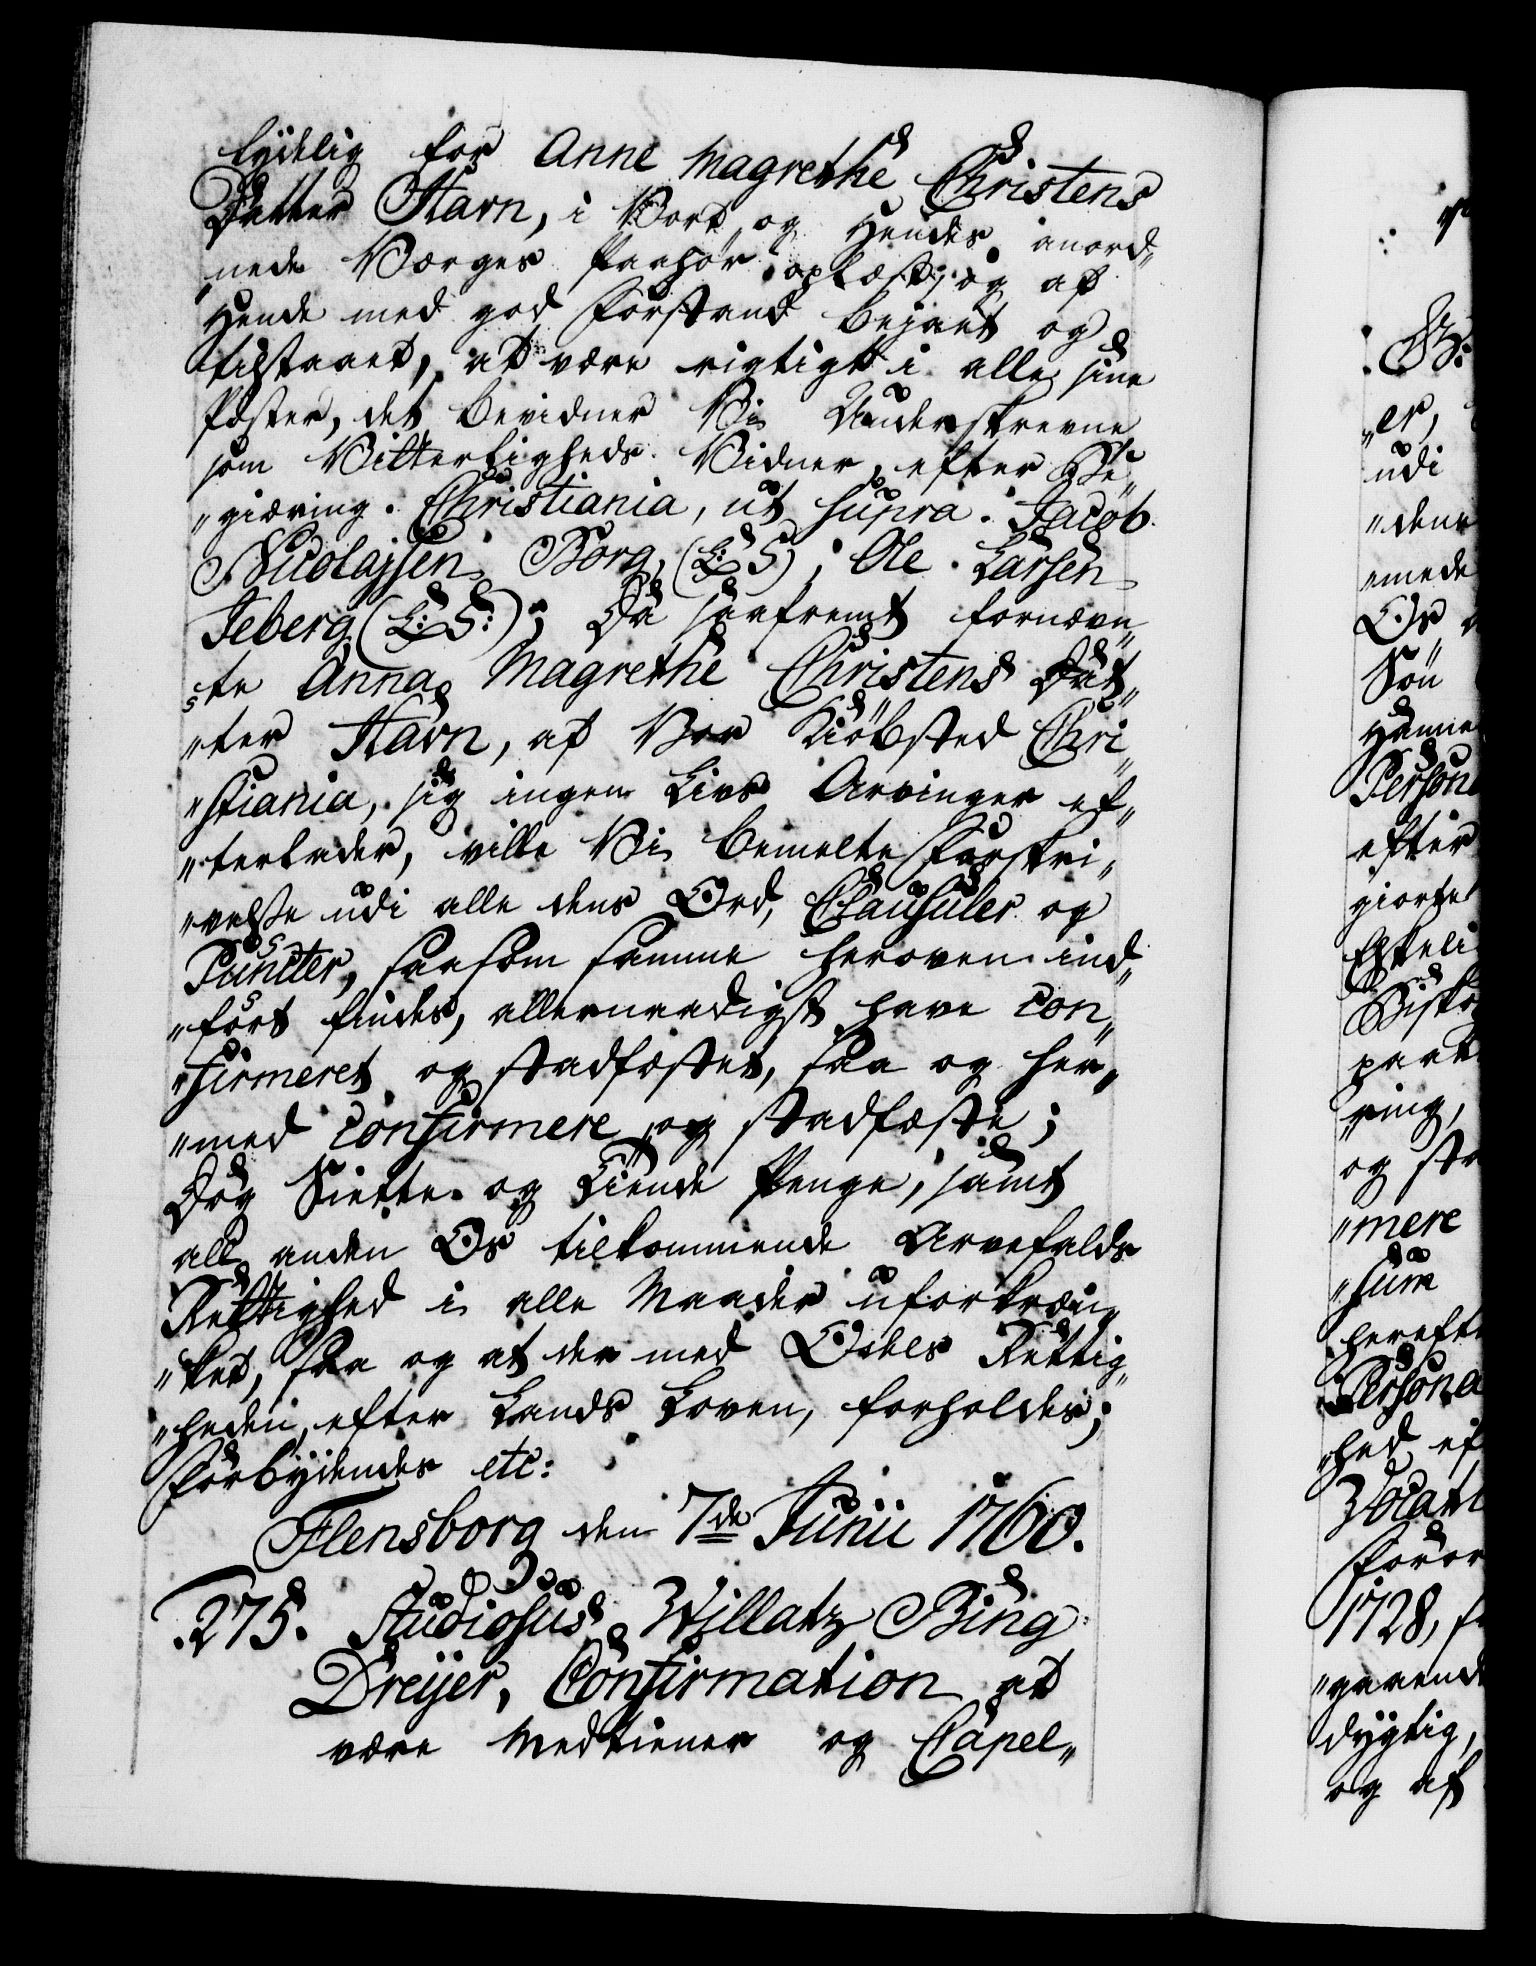 lydelig for Anne Magrethe Christens
Datter Stavn, i Vort og Hendes anord„
„nede Værges Paahør oplæst, og af
Hende med god Forstand bejaet og
tilstaaet, at være rigtigt i alle sine
Poster, det bevidner Vi Underskrevne
som Vitterligheds Vidner, efter Be„
„giæring. Christiania, ut supra. Jacob
Nicolajsen Borg, (L: S), Ole Larsen
Jeberg (L: S:); Da saafremt fornævn„
„te Anna Magrethe Christens Dat„
„ter Stavn, af Vor Kiöbsted Chri„
„stiania, sig ingen Livs Arvinger ef„
„terlader, ville Vi bemelte Forskri„
„velse udi alle dens Ord, Clausuler og
Puncter, saasom samme heroven ind„
„ført findes, allernaadigst have con„
„firmeret og stadfæstet, saa og her„
„med confirmere og stadfæste;
Dog Siette og Tiende Penge, samt
all anden Os tilkommende Arvefalds
Rettighed i alle Maader uforkræn„
„ket, saa og at der med Odels Rettig„
„heden, efter Lands Loven, forholdes;
Forbydendes etc:
Flensborg den 7de Junii 1760.
275. Studiosus Willatz Bing
Dreÿer, Confirmation at
være Medtiener og Capel„
er,
udi
„dene
„mede
Os
Sön
Hanne
Person
efter
giorte
paat
„ring,
og st
„mere
„sum
hereft
Persona
„hed ef
Vocati
Foror
1728, f
„gaaende
dygtig,
og af